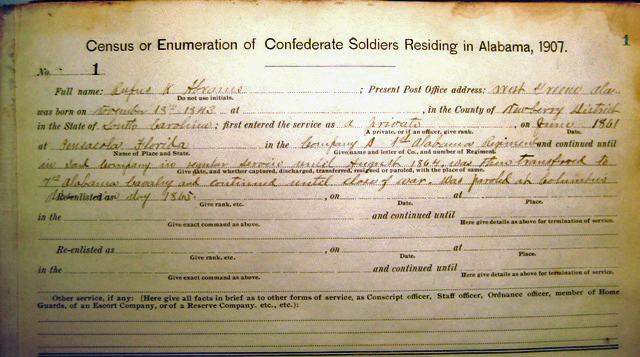 1
Census or Enumeration of Confederate Soldiers Residing in Alabama, 1907.
No. 1
Full name: Rufus K Abrams ; Present Post Office address: West Greene Ala
Do not use initials.
was born on November 13th 1843 at , in the County of Newberry District
in the State of South Carolina; first entered the service as a Private on June 1861
A private, or if an officer, give rank. Date.
at Pensacola Florida in the Company A 1st Alabama Regiment and continued until
Name of Place and State. Give name and letter of Co., and number of Regiment.
in said Company in regular service until August 1864, was then transferred to
Give date, and whether captured, discharged, transferred, resigned or paroled, with the place of same.
7th Alabama Cavalry and continued until close of war. Was paroled at Columbus
Re-enlisted as day 1865 , on at
Give rank, etc. Date. Place.
in the and continued until
Give exact command as above. Here give details as above for termination of service.
Re-enlisted as , on at
Give rank, etc. Date. Place.
in the and continued until
Give exact command as above. Here give details as above for termination of service.
Other service, if any: (Here give all facts in brief as to other forms of service, as Conscript officer, Staff officer, Ordnance officer, member of Home
Guards, of an Escort Company, or of a Reserve Company. etc., etc.):